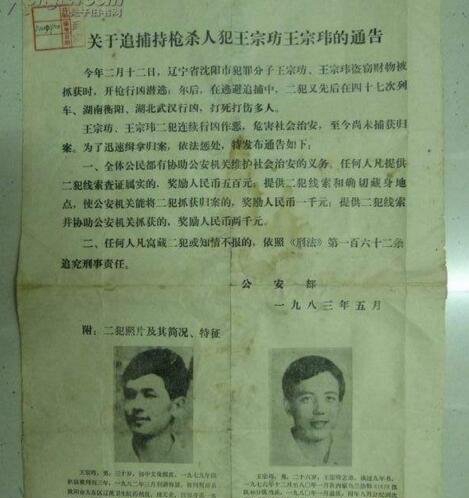 关于追捕持枪杀人犯王宗坊王宗玮的通告
今年二月十二日，辽宁省沈阳市犯罪分子王宗坊、王宗玮盗窃财物被
抓获时，开枪行凶潜逃，尔后，在逃避追捕中，二犯又先后在四十七次列
车、湖南衡阳、湖北武汉行凶，打死打伤多人。
王宗坊、王宗玮二犯连续行凶作恶，危害社会治安，至今尚未捕获归
案。为了迅速缉拿归案，依法惩处，特发布通告如下：
一、全体公民都有协助公安机关维护社会治安的义务。任何人凡提供
二犯线索查证属实的，奖励人民币五百元；提供二犯线索和确切藏身地
点，使公安机关能将二犯抓获归案的，奖励人民币一千元；提供二犯线索
并协助公安机关抓获的，奖励人民币两千元。
二、任何人凡窝藏二犯或知情不报的，依照《刑法》第一百六十二条
追究刑事责任。
公安部
一九八三年五月
附：二犯照片及其简况、特征
王宗坊，男，三十岁，初中文化程度，一九七九年
王宗玮，男，二十六岁，王宗坊之弟，